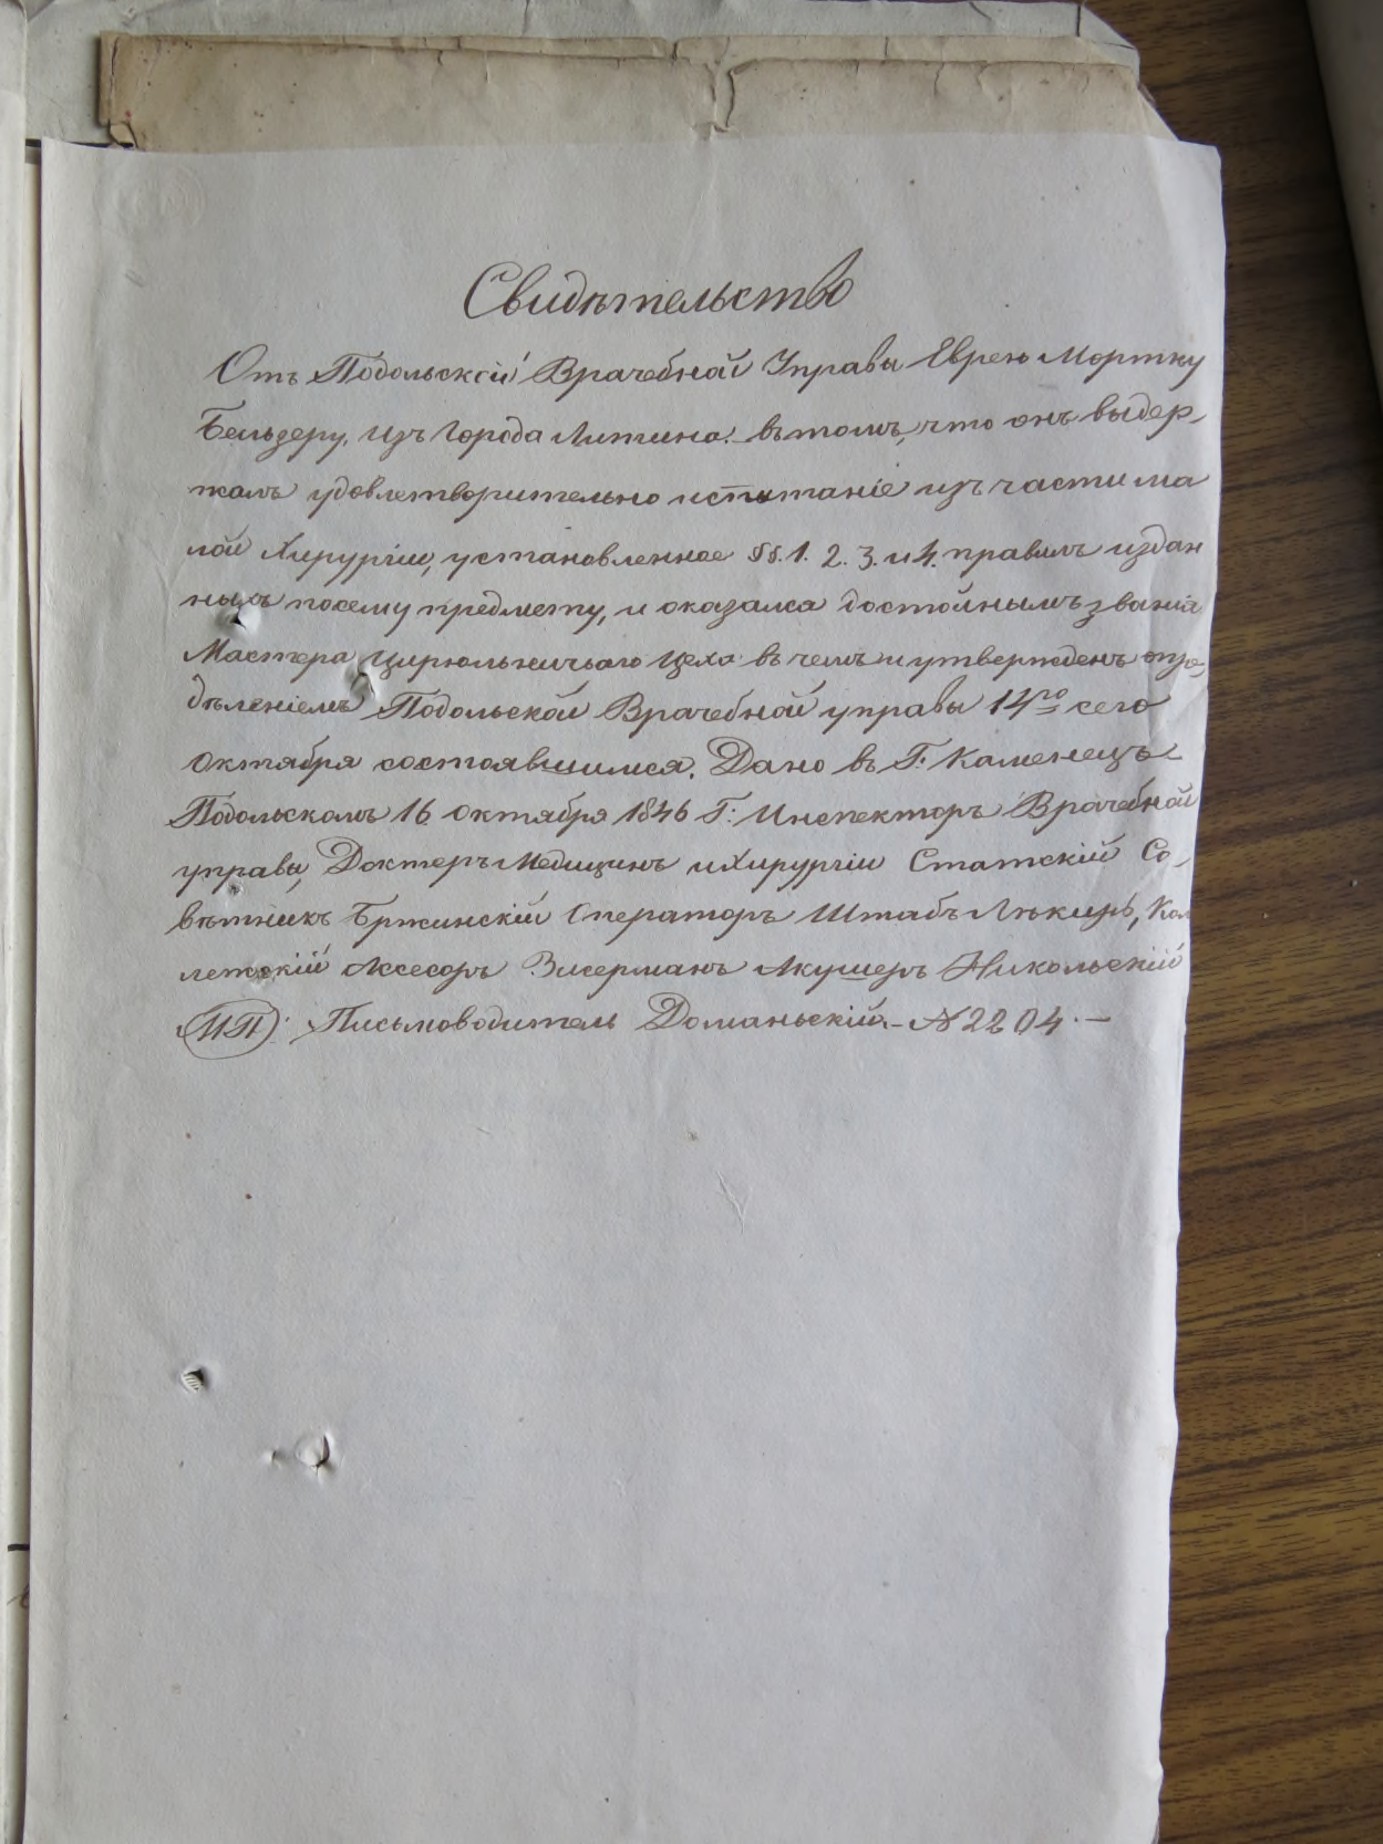 Свидѣтельство
Отъ Подольской Врачебной Управы Еврею Мортку
Бельдеру, изъ Города Литина. въ томъ, что онъ выдер-
жалъ удовлетворительно испытаніе изъ части ма
лой Хирургіи, установленное §§. 1. 2. 3. и 4. правилъ издан
ныхъ посему предмету, и оказался достойнымъ званія
Мастера Цирюльничьаго Цеха въ чемъ и утвержденъ опре-
дѣленіемъ Подольской Врачебной управы 14го сего
Октября состоявшимся. Дано въ Г: Каменецъ
Подольскомъ 16 Октября 1846 Г: Инспекторъ Врачебной
управы, Докторъ Медицинъ и Хирургіи Статскій Со-
вѣтникъ Бржинскій Операторъ Штабъ Лѣкирь, Кол
лежскій Ассесоръ Зисерманъ Акушеръ Никольскій
(МП) Письмоводитель Доманьскій. - № 2204. -